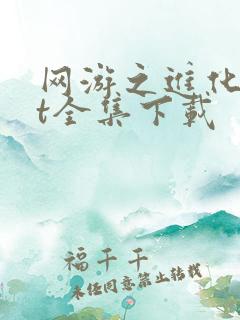 网游之进化
t全集下载
福千千
未经同意禁止转载